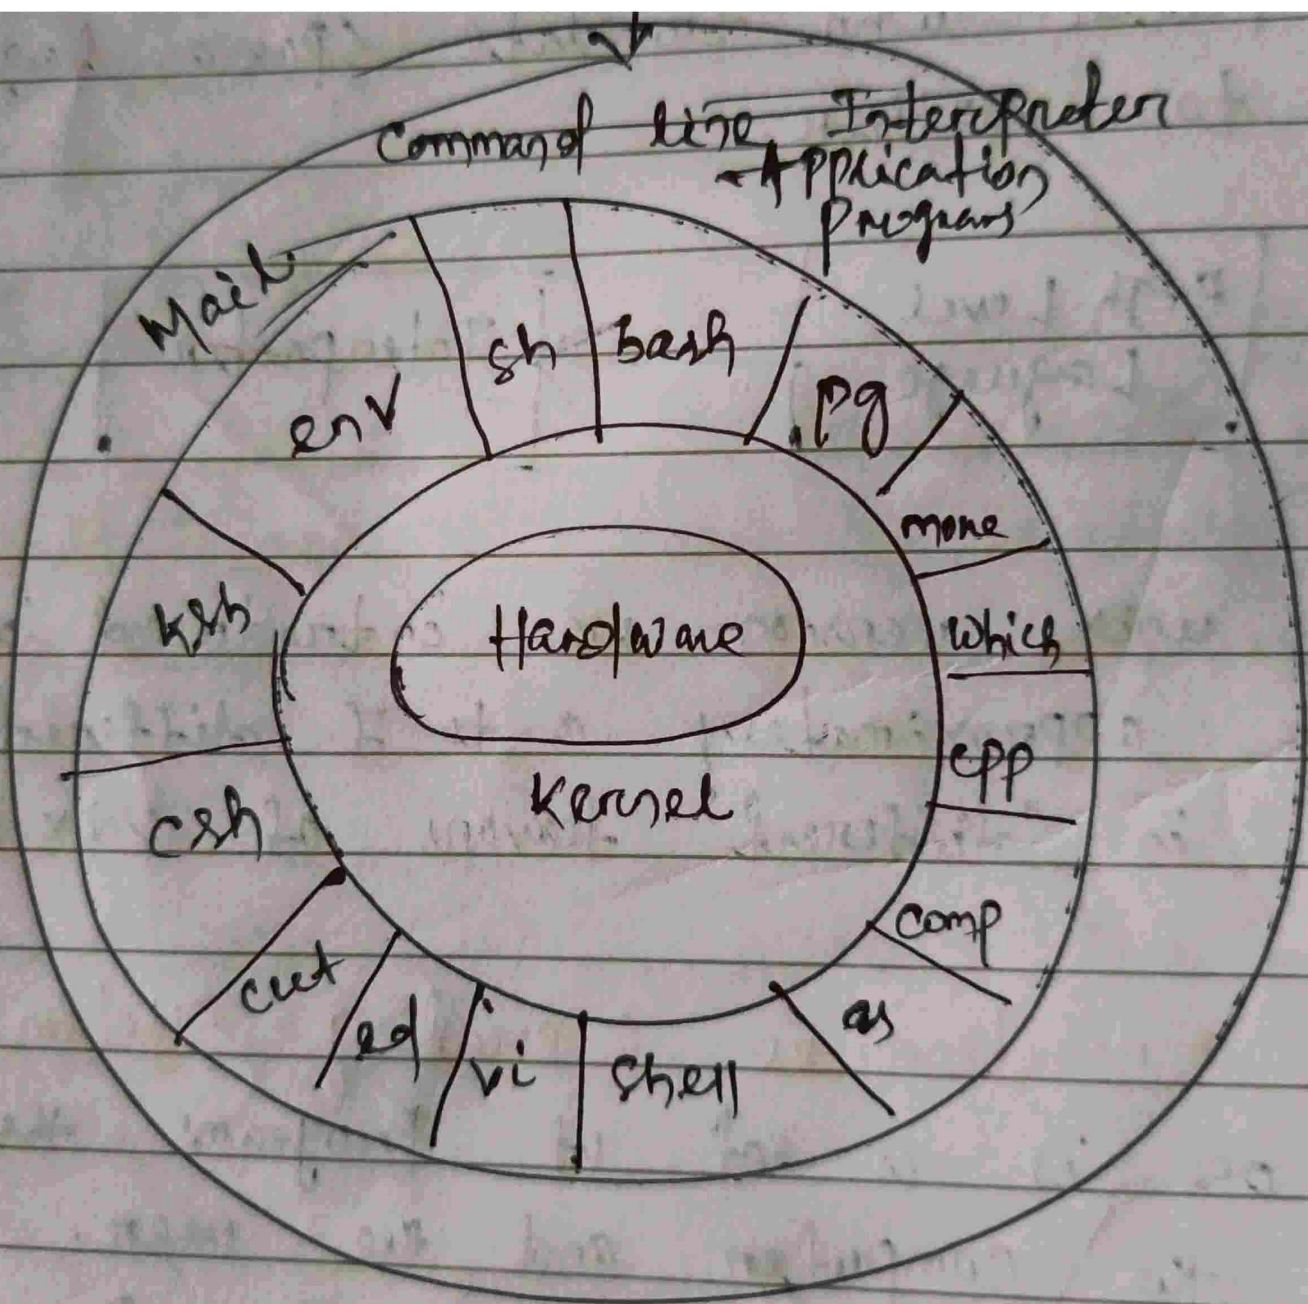 Command line Interpreter
Application
programs
Mail
env
sh
bash
pg
more
which
cpp
comp
as
shell
vi
ed
cut
csh
ksh
Hardware
Kernel